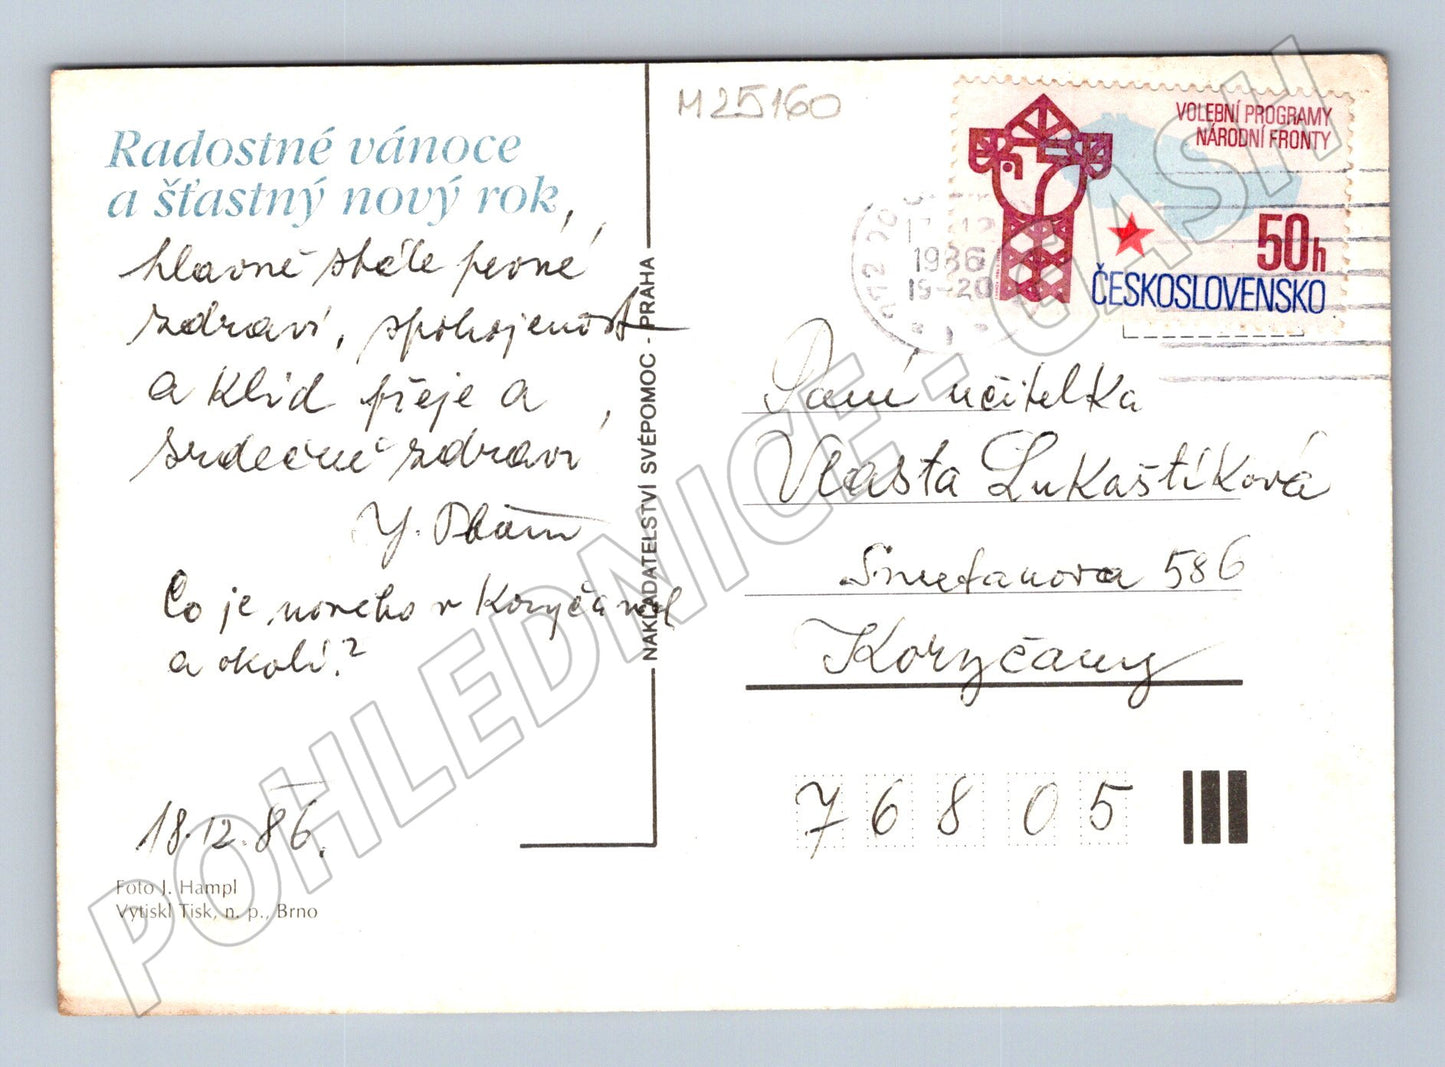 Radostné vánoce
a šťastný nový rok,
hlavně stále pevné
zdraví, spokojenost
a klid přeje a
srdečně zdraví
J.
Co je nového v Koryčanech
a okolí?
18.12.86.
Foto J. Hampl
Vytiskl Tisk, n. p., Brno
NAKLADATELSTVÍ SVÉPOMOC - PRAHA
M25160
VOLEBNÍ PROGRAMY
NÁRODNÍ FRONTY
50h
ČESKOSLOVENSKO
1986
19-20
Paní učitelka
Vlasta Lukaštíková
Smetanova 586
Koryčany
76805
POHLEDNICE - CASH